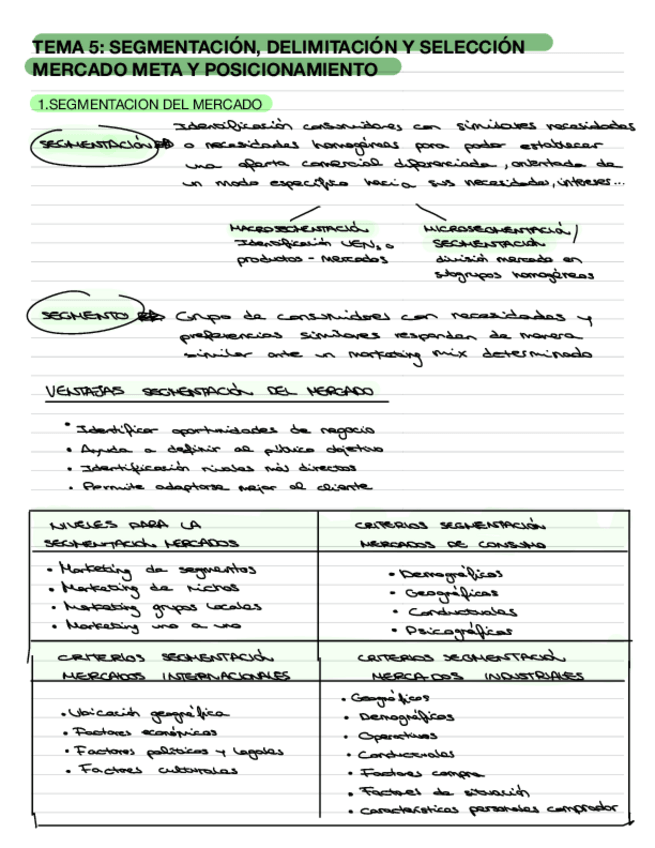 TEMA 5: SEGMENTACIÓN, DELIMITACIÓN Y SELECCIÓN
MERCADO META Y POSICIONAMIENTO
1.SEGMENTACION DEL MERCADO
SEGMENTACIÓN Identificación consumidores con similares necesidades
o necesidades homogéneas para poder establecer
una oferta comercial diferenciada, orientada de
un modo específico hacia sus necesidades, intereses...
MACROSEGMENTACIÓN
Identificación UEN, o
productos - mercados
MICROSEGMENTACIÓN/
SEGMENTACIÓN
división mercado en
subgrupos homogéneos
SEGMENTO Grupo de consumidores con necesidades y
preferencias similares responden de manera
similar ante un marketing mix determinado
VENTAJAS SEGMENTACIÓN DEL MERCADO
• Identificar oportunidades de negocio
• Ayuda a definir al público objetivo
• Identificación rivales más directos
• Permite adaptarse mejor al cliente
NIVELES PARA LA
SEGMENTACIÓN MERCADOS
• Marketing de segmentos
• Marketing de nichos
• Marketing grupos locales
• Marketing uno a uno
CRITERIOS SEGMENTACIÓN
MERCADOS DE CONSUMO
• Demográficos
• Geográficos
• Conductuales
• Psicográficos
CRITERIOS SEGMENTACIÓN
MERCADOS INTERNACIONALES
• Ubicación geográfica
• Factores económicos
• Factores políticos y legales
• Factores culturales
CRITERIOS SEGMENTACIÓN
MERCADOS INDUSTRIALES
• Geográficos
• Demográficos
• Operativos
• Conductuales
• Factores compra
• Factores de situación
• Características personales comprador